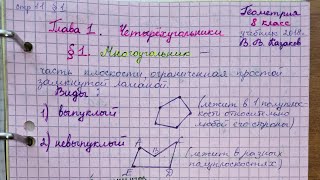 стр 11 § 1
Геометрия
8 класс
учебник 2018г.
В.В. Казаков
Глава 1. Четырёхугольники
§ 1. Многоугольник –
часть плоскости, ограниченная простой
замкнутой ломаной.
Виды:
1) выпуклый
(лежит в 1 полуплос-
кости относительно
любой его стороны)
2) невыпуклый
A
B
(лежит в разных
полуплоскостях)
E
D